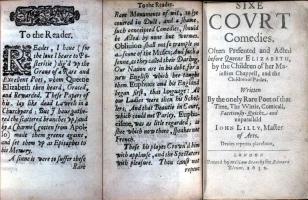 To the Reader.
Reader, I have (for
the love I beare to Po-
steritie) dig'd up the
Grave of a Rare and
Excellent Poet, whom Queene
Elizabeth then heard, Graced,
and Rewarded. These Papers of
his, lay like dead
in a Churchyard; But I have
gathered the scattered branches up, and
by a Charme (gotten from Apol-
lo) made them greene againe,
and set them up as Epitaphes to
his Memory.
A sinne it were to suffer these
Rare
To the Reader.
Rare Monuments of wit, to lye
covered in Dust, and a shame,
such conceipted Comedies, should
be Acted by none but
Oblivion shall not so trample on
a sonne of the Muses; And such a
sonne, as they called their Darling.
Our Nation are in his debt, for a
new English which hee taught
them. Euphues and his England
began first, that language: All
our Ladies were then his Schol-
lers; And that Beautie in Court,
which could not Parley Euphu-
eisme, was as little regarded, as
shee which now there, speakes not
French.
These his playes Crown'd him
with applause, and the Spectators
with pleasure. Thou canst not
repent
SIXE
COVRT
Comedies.
Often Presented and Acted
before Queene ELIZABETH,
by the Children of her Ma-
iesties Chappell, and the
Children of Paules.
Written
By the onely Rare Poet of that
Time, The Wittie, Comicall,
Facetiously-Quicke and
unparalelld
IOHN LILLY, Master
of Arts.
Decies repetita placebunt.
LONDON
Printed by William Stansby for Edward
Blount. 1632.